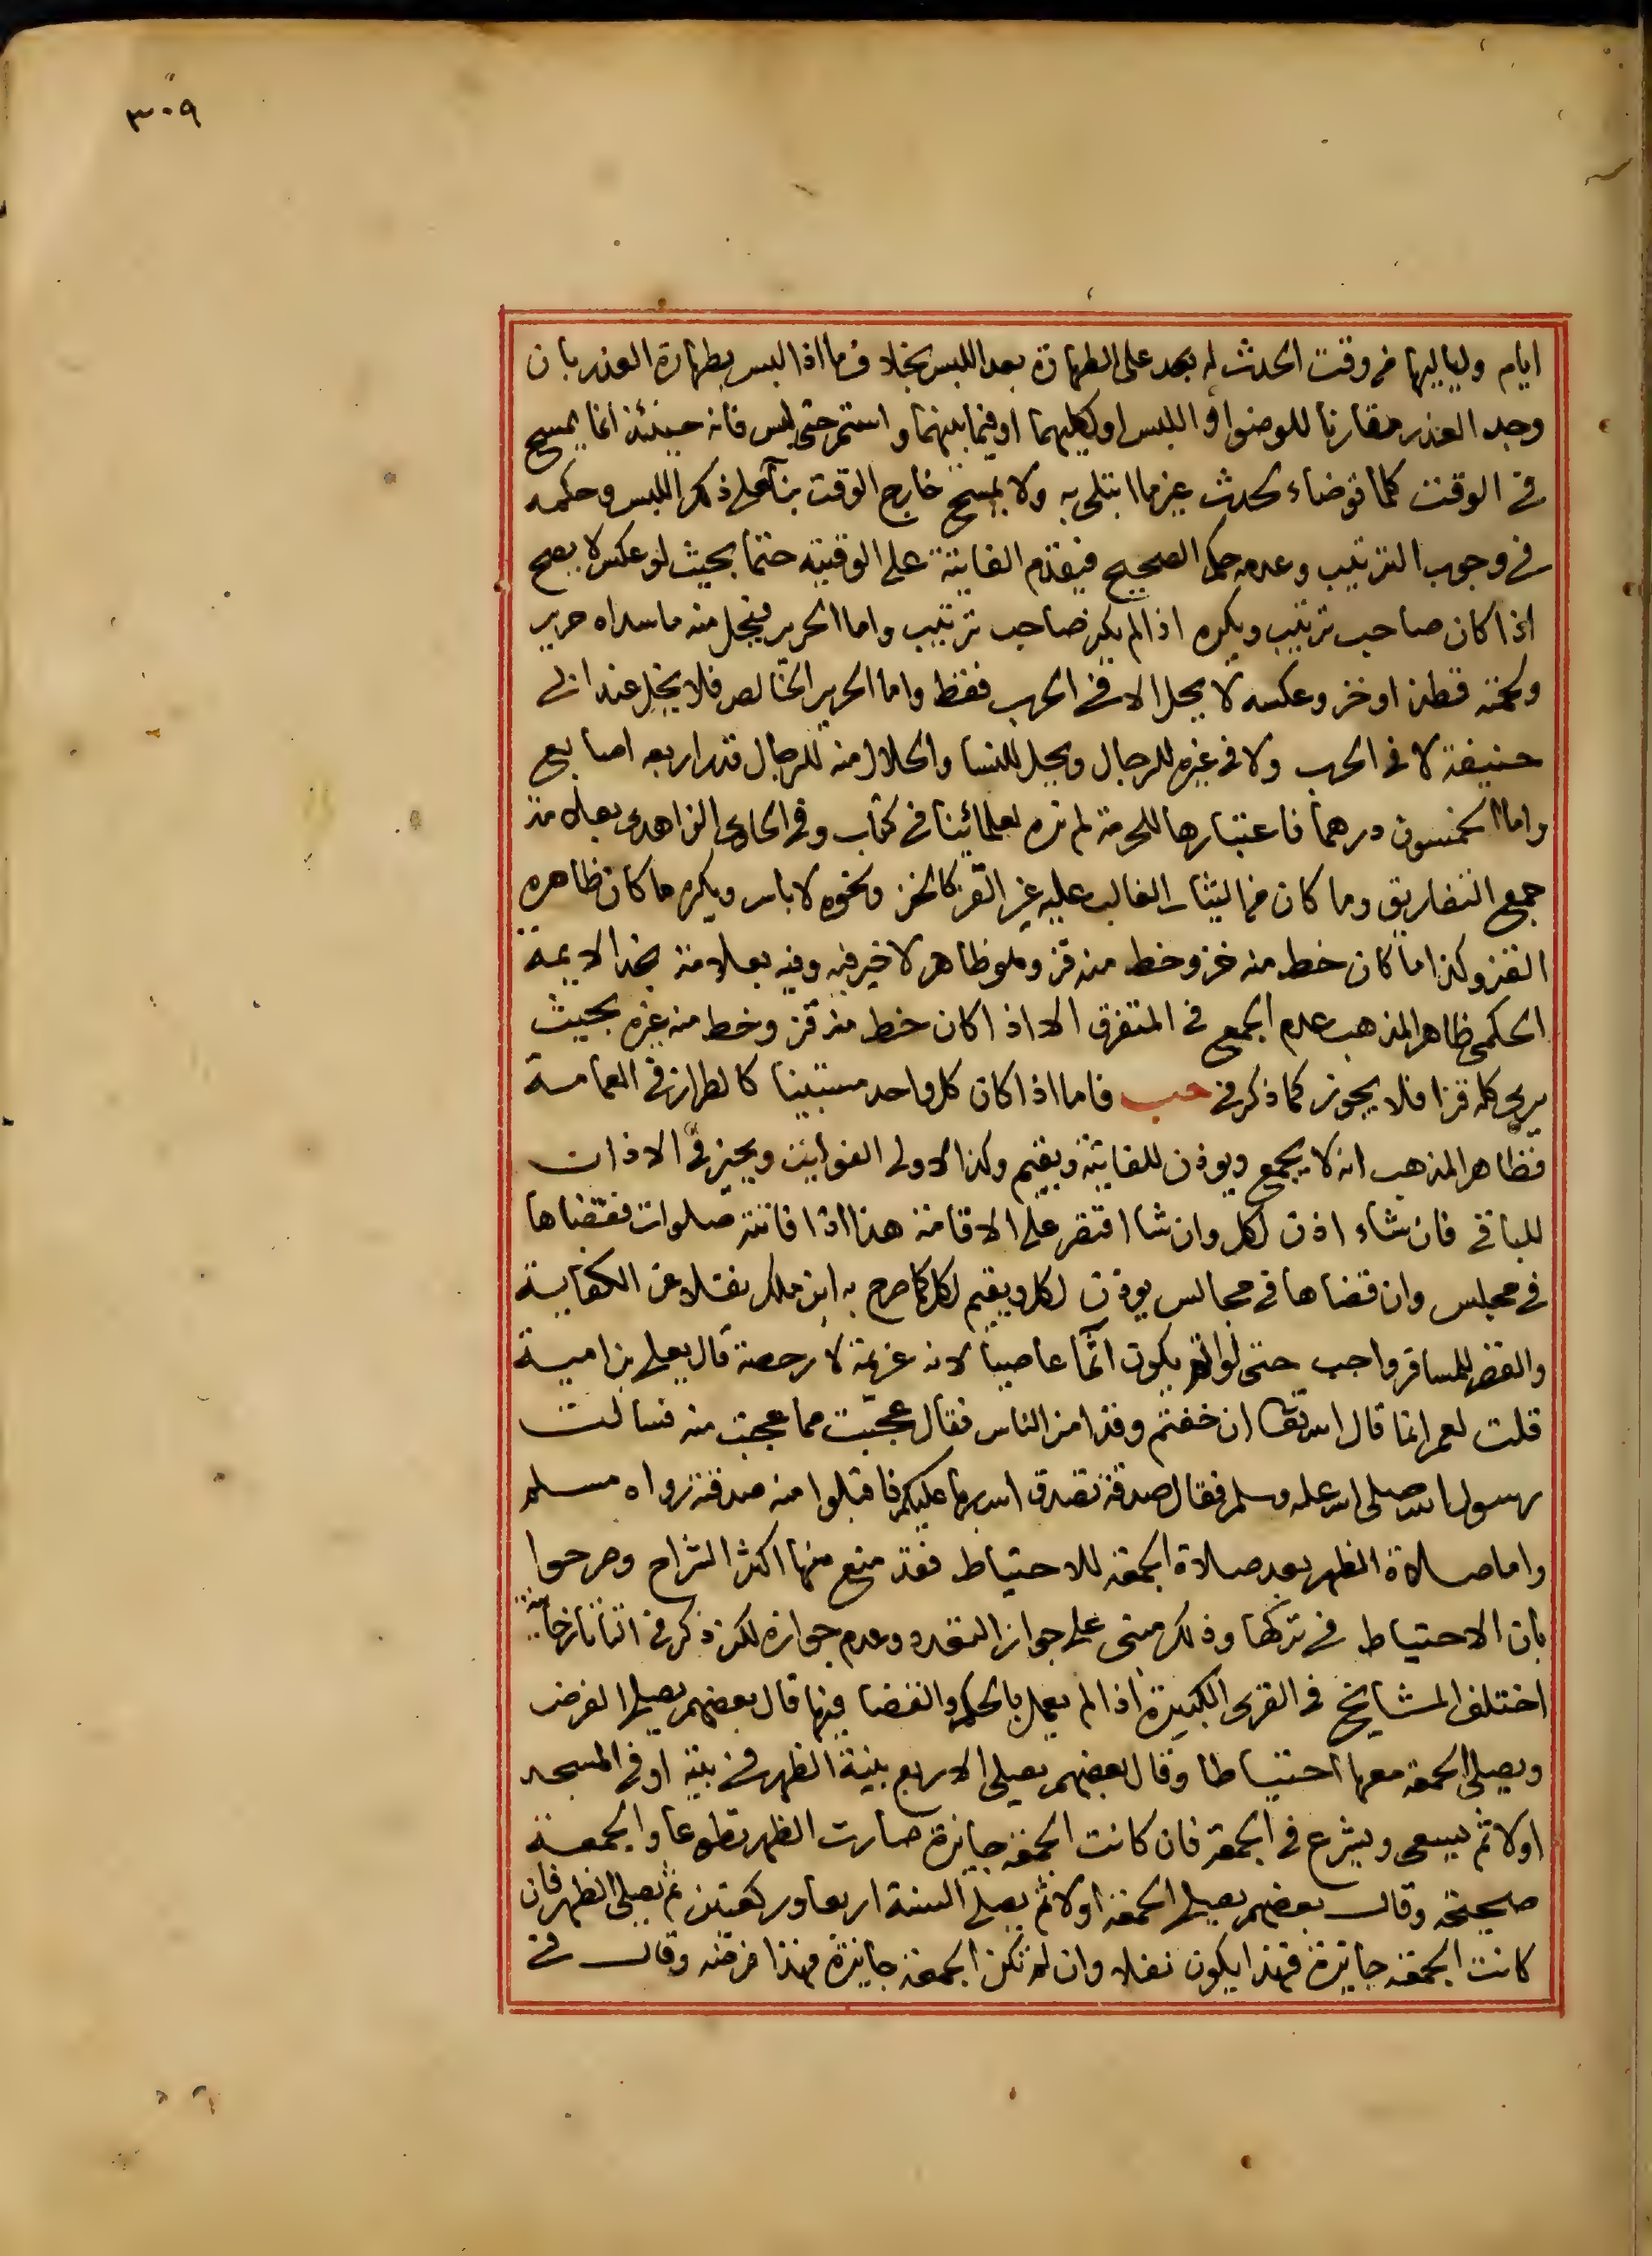 ٣٠٩
ايام ولياليها من وقت الحدث له بعد على الطهارة بعد اللبس بخلاف ما اذا لبس بطهارة العذر بان
وجد العذر مقارنا للوضوا او اللبس او لكليهما او فيما بينهما واستمر حتى لبس فانه حينئذ انما يمسح
في الوقت كلما توضاء لحدث غير ما ابتلى به ولا يمسح خارج الوقت بنآ على ذكر اللبس وحكمه
في وجوب الترتيب وعدمه حكم الصحيح فيقدم الفايتة على الوقتيه حتما بحيث لو عكس لا يصح
اذا كان صاحب ترتيب ويكره اذا لم يكن صاحب ترتيب واما الحرير فيحل منه ما سداه حرير
ولحمته قطن او خز وعكسه لا يحل الا في الحرب فقط واما الحرير الخالص فلا يحل عند ابي
حنيفة لا في الحرب ولا في غيره للرجال ويحل للنسا والحلال منه للرجال قدر اربعه اصابع
واما الخمسون درهما فاعتبارها للحرمة لم نره لعلمائينا في كتاب وفي الحاوي الزاهدى بعلامة
جمع التفاريق وما كان من الثياب الغالب عليه غير القز كالخز ونحوه لا باس ويكره ما كان ظاهره
القز وكذا ما كان خط منه خز وخط منه قز وهو ظاهر لا خير فيه وفيه بعلامة نجم الايمة
الحكمى ظاهر المذهب عدم الجمع في المتفرق الا اذا كان خط منه قز وخط منه غيره بحيث
يرى كله قزا فلا يجوز كما ذكر في حب فاما اذا كان كل واحد مستبينا كالطراز في العمامة
فظاهر المذهب انه لا يجمع ويوذن للفايتة ويقيم وكذا لاولى الفوايت ويخير في الاذان
للباقي فان شاء اذن لكل وان شا اقتصر على الاقامة هذا اذا فاتته صلوات فقضاها
في مجلس وان قضاها في مجالس يوذن لكل ويقيم لكل كما صرح به ابن ملك نقلا عن الكفاية
والقصر للمسافر واجب حتى لو اتم يكون آثما عاصيا لانه عزيمة لا رخصة قال يعلى بن امية
قلت لعمر انما قال الله تعا ان خفتم وقد امن الناس فقال عجبت مما عجبت منه فسالت
رسول الله صلى الله عليه وسلم فقال صدقة تصدق الله بها عليكم فاقبلوا منه صدقته رواه مسلم
واما صلاة الظهر بعد صلاة الجمعة للاحتياط فقد منع منها اكثر الشراح وصرحوا
بان الاحتياط في تركها وذلك مبنى على جواز التعدد وعدم جوازه لكن ذكر في التاتارخانية
اختلف المشايخ في القرى الكبيرة اذا لم يعمل بالحكم والقضا فيها قال بعضهم يصلى الفرض
ويصلى الجمعة معها احتياطا وقال بعضهم يصلى الاربع بنية الظهر في بيته او في المسجد
اولا ثم يسعى ويشرع في الجمعة فان كانت الجمعة جايزة صارت الظهر تطوعا والجمعة
صحيحة وقال بعضهم يصلى الجمعة اولا ثم يصلى السنة اربعا وركعتين ثم يصلى الظهر فان
كانت الجمعة جايزة فهذا يكون نفلا وان لم تكن الجمعة جايزة فهذا فرضه وقال في